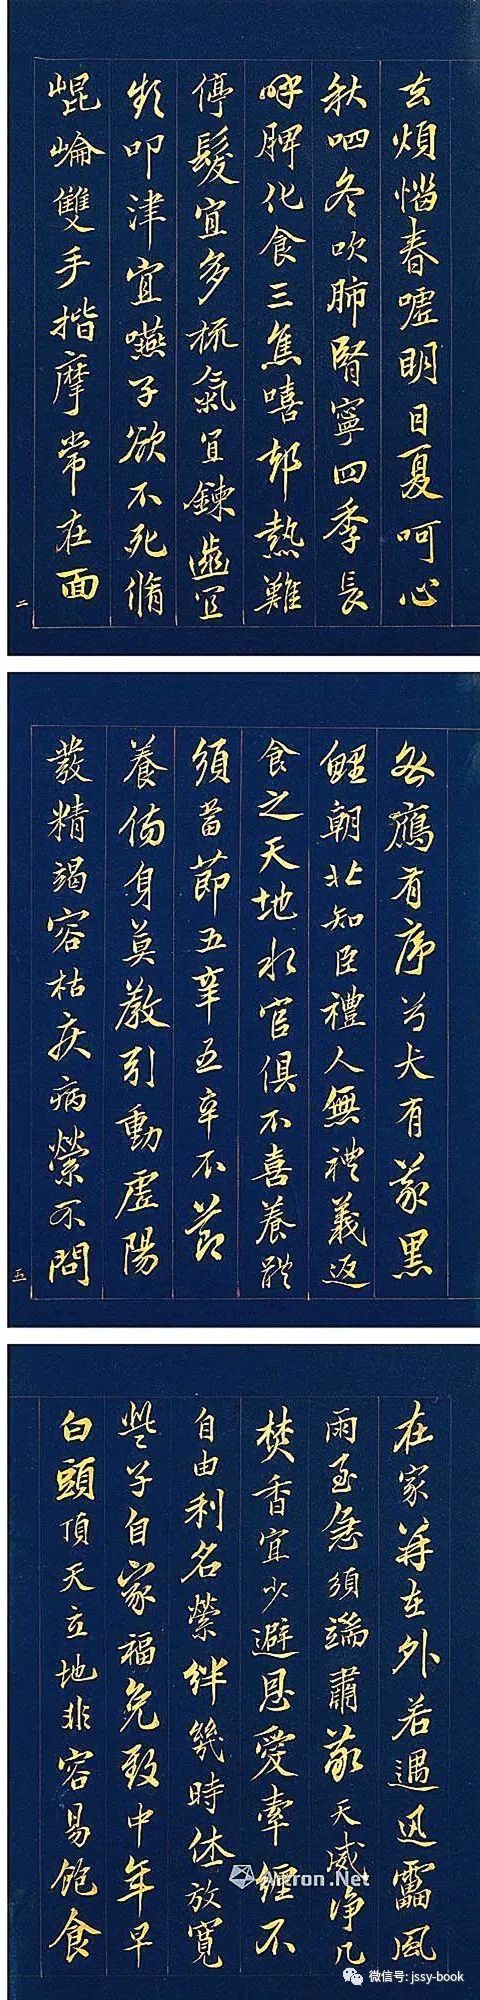 去煩惱春噓明目夏呵心
秋呬冬吹肺腎寧四季長
呼脾化食三焦嘻却熱難
停髮宜多梳氣宜鍊齒宜
數叩津宜嚥子欲不死脩
崐崘雙手揩摩常在面
二
咎鴈有序兮犬有義黑
鯉朝北知臣禮人無禮義返
食之天地水官俱不喜養體
須當節五辛五辛不節
養傷身莫教引動虛陽
發精竭容枯疾病縈不問
五
在家并在外若遇迅靁風
雨至急須端肅敬天威净几
焚香宜少避恩愛牽纏不
自由利名縈絆幾時休放寬
些子自家福免致中年早
白頭頂天立地非容易飽食
Artron.Net
微信号: jssy-book